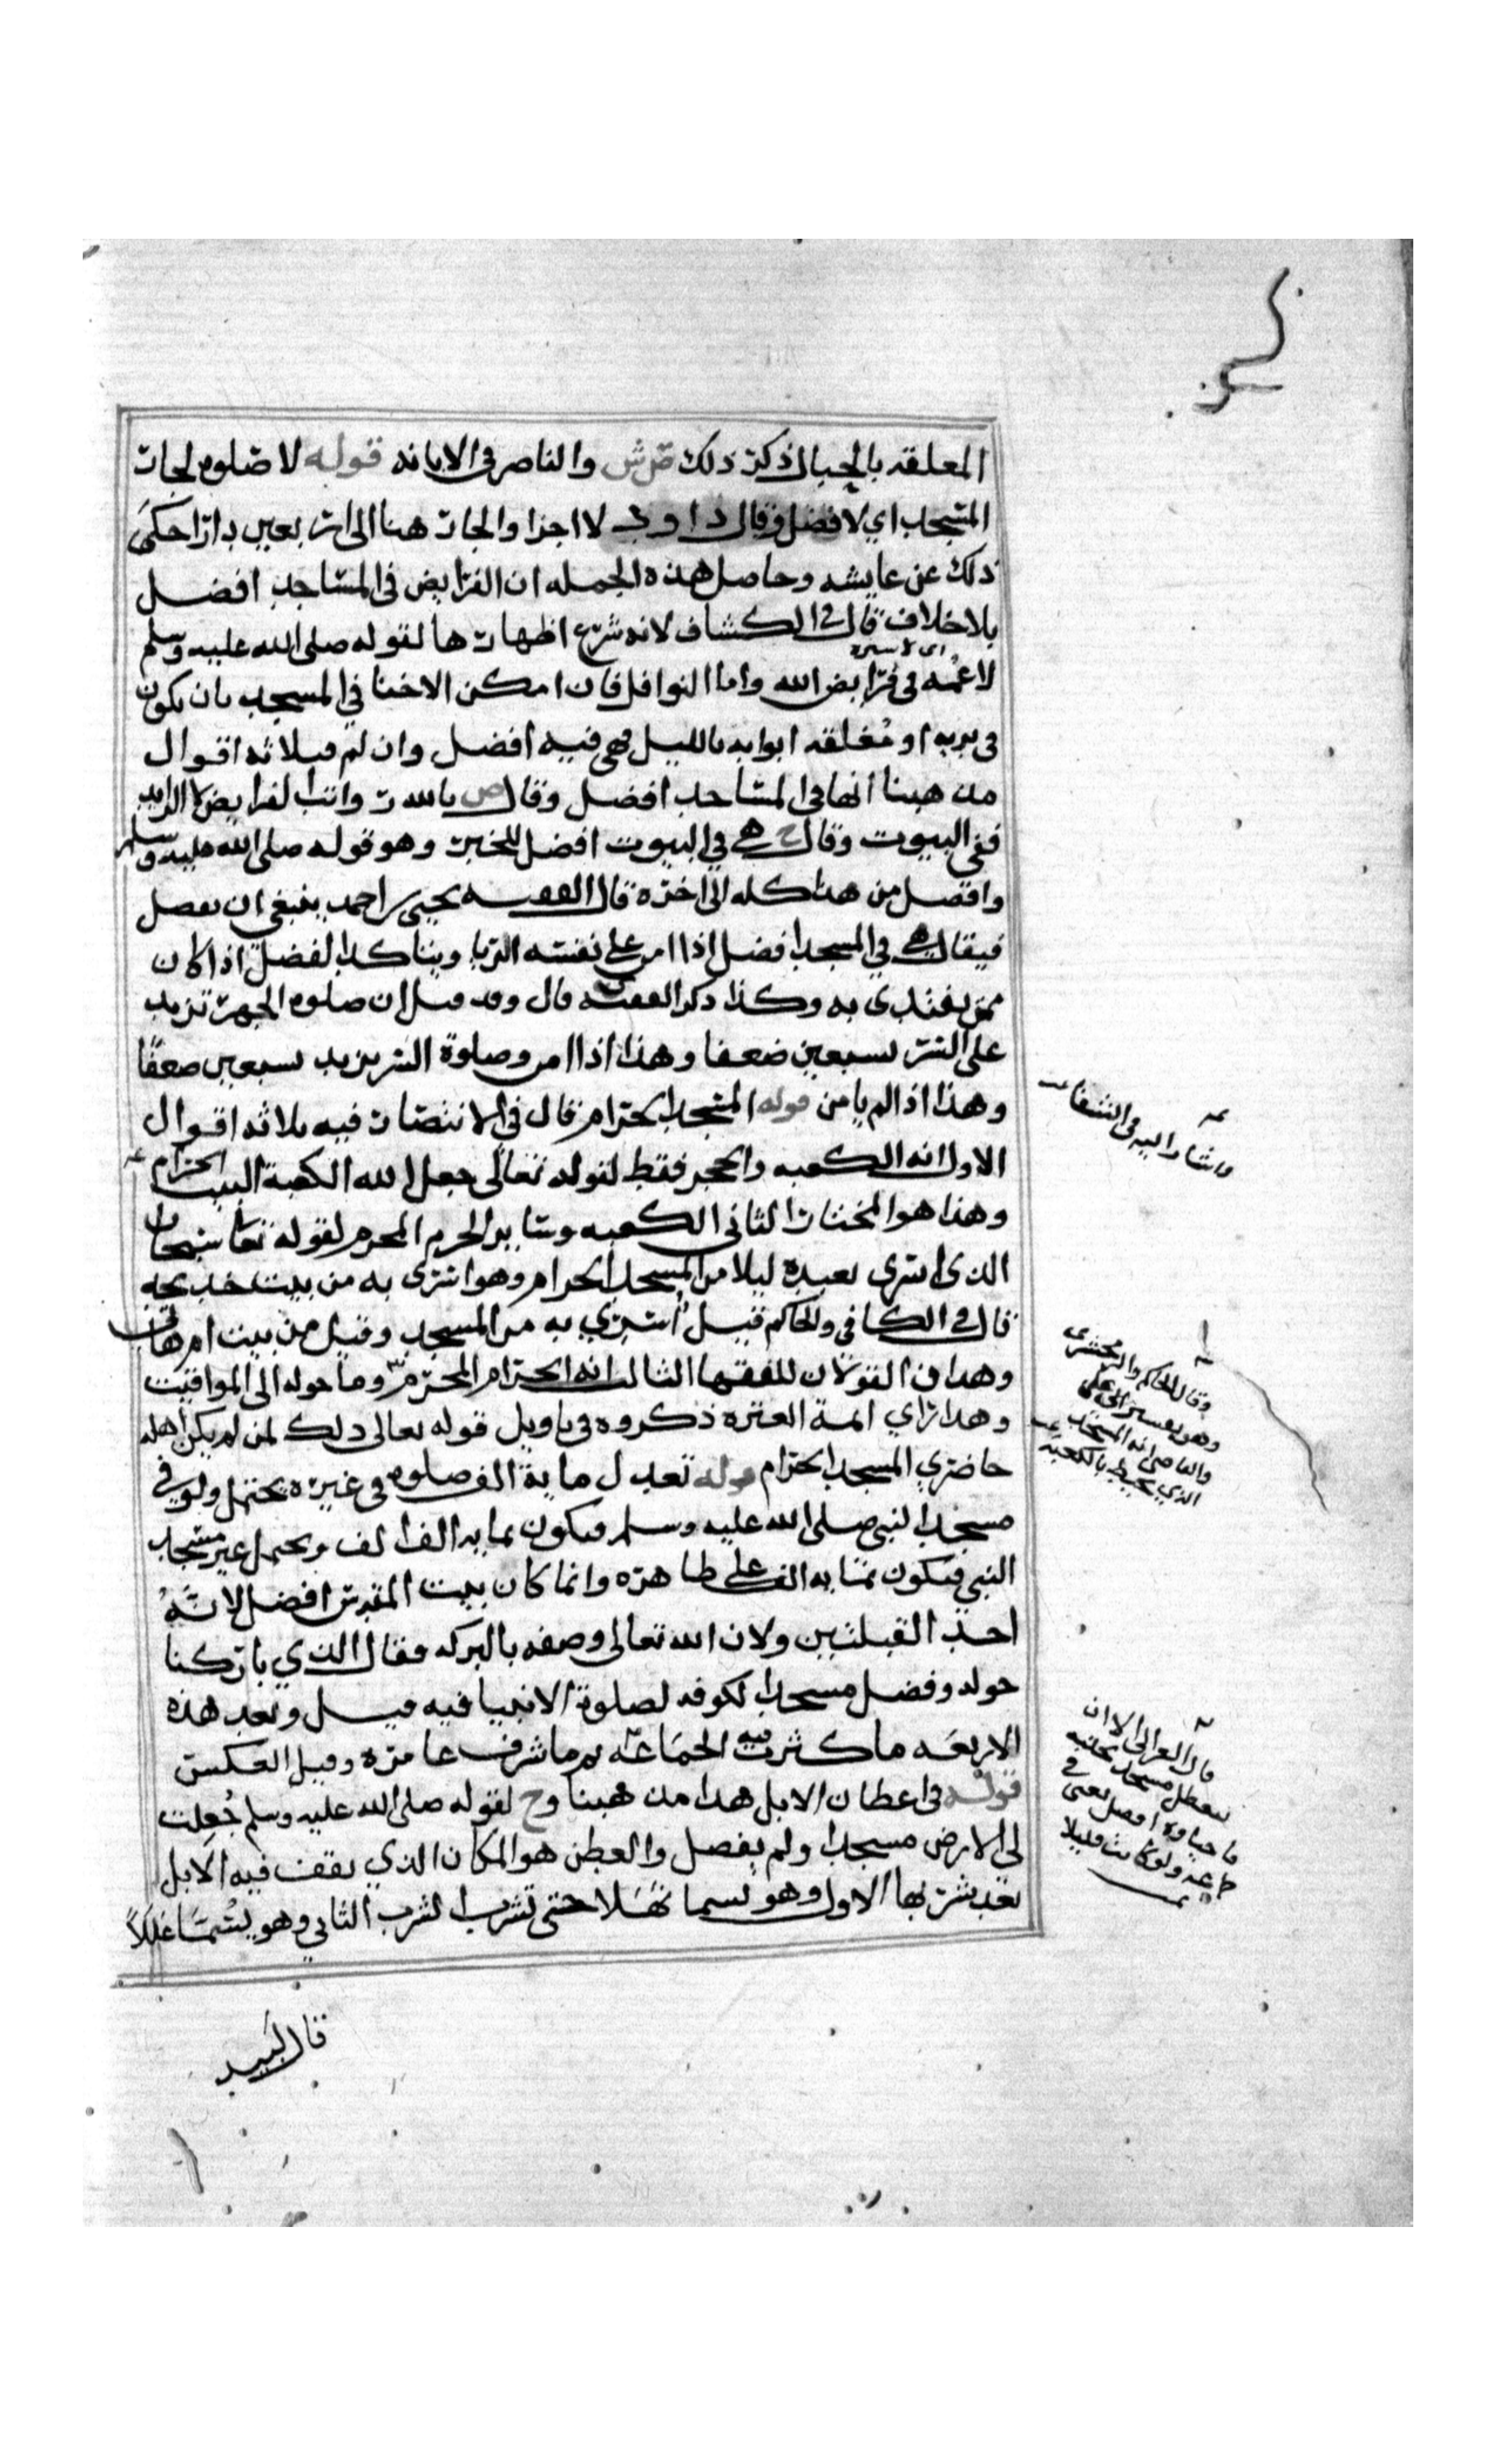 المعلقه بالجبال ذكر ذلك ض ش والناصر فى الابانه قوله لا صلوه لجار
المسجد اي لا فضل وقال داود لا اجزا والجار هنا الى اربعين دارا حكى
ذلك عن عايشه وحاصل هذه الجمله ان الفرايض فى المساجد افضل
بلا خلاف قال فى الكشاف لانه شرع اظهارها لقوله صلى الله عليه وسلم
لا غمه فى فرايض الله واما النوافل فان امكن الاخفا في المسجد بان يكون
فى بريه او مغلقه ابوابه بالليل فهى فيه افضل وان لم فثلاثه اقوال
مذهبنا انها فى المساجد افضل وقال ص بالله ت واتب الفرايض لا الزايد
ففي البيوت وقال ح هي في البيوت افضل للخبر وهو قوله صلى الله عليه وسلم
وافضل من هذا كله الى اخره قال الفقيه يحيى بن احمد ينبغي ان يفصل
فيقال هي في المسجد افضل اذا امن على نفسه الريا ويتاكد الفضل اذا كان
ممن يقتدى به وكذا ذكر الفقيه قال وقد قيل ان صلوه الجهر تزيد
على السر سبعين ضعفا وهذا اذا امن وصلوة السر يزيد سبعين ضعفا
وهذا اذا لم يامن قوله المسجد الحرام قال في الانتصار فيه ثلاثه اقوال
الاول انه الكعبه والحجر فقط لقوله تعالى جعل الله الكعبة البيت الحرام
وهذا هو المختار الثانى الكعبه وساير الحرم المحرم لقوله تعا سبحان
الذى اسرى بعبده ليلا من المسجد الحرام وهو اسرى به من بيت خديجه
قال فى الكافى والحاكم قيل اسرى به من المسجد وقيل من بيت ام هانى
وهذان القولان للفقها الثالث انه الحرام المحرم وما حوله الى المواقيت
وهذا راي ايمة العتره ذكروه فى تاويل قوله تعالى ذلك لمن لم يكن اهله
حاضري المسجد الحرام قوله تعدل ماية الف صلوه فى غيره يحتمل ولو في
مسجد النبى صلى الله عليه وسلم فيكون بمايه الف الف ويحتمل غير مسجد
النبي فيكون بمايه الف على ظاهره وانما كان بيت المقدس افضل لانه
احد القبلتين ولان الله تعالى وصفه بالبركه فقال الذي باركنا
حوله وفضل مسجد الكوفه لصلوة الانبيا فيه قيل وبعد هذه
الاربعه ما كثرت فيه الجماعه ثم ما شرف عامره وقيل العكس
قوله فى اعطان الابل هذا مذهبنا وح لقوله صلى الله عليه وسلم جعلت
لى الارض مسجدا ولم يفصل والعطن هو المكان الذي يقف فيه الابل
بعد شربها الاول وهو يسما نهلا حتى تشرب الشرب الثاني وهو يسما عللا
قال لبيد
واشار اليه فى الشفا
وقال الحاكم والزمخشرى
والقاضى انه المسجد
الذي يحيط بالكعبه
قال الغزالى الا ان
يتعطل مسجد بجنبه
فاحياوه افضل يعنى فى
جماعه ولو كانت قليلا